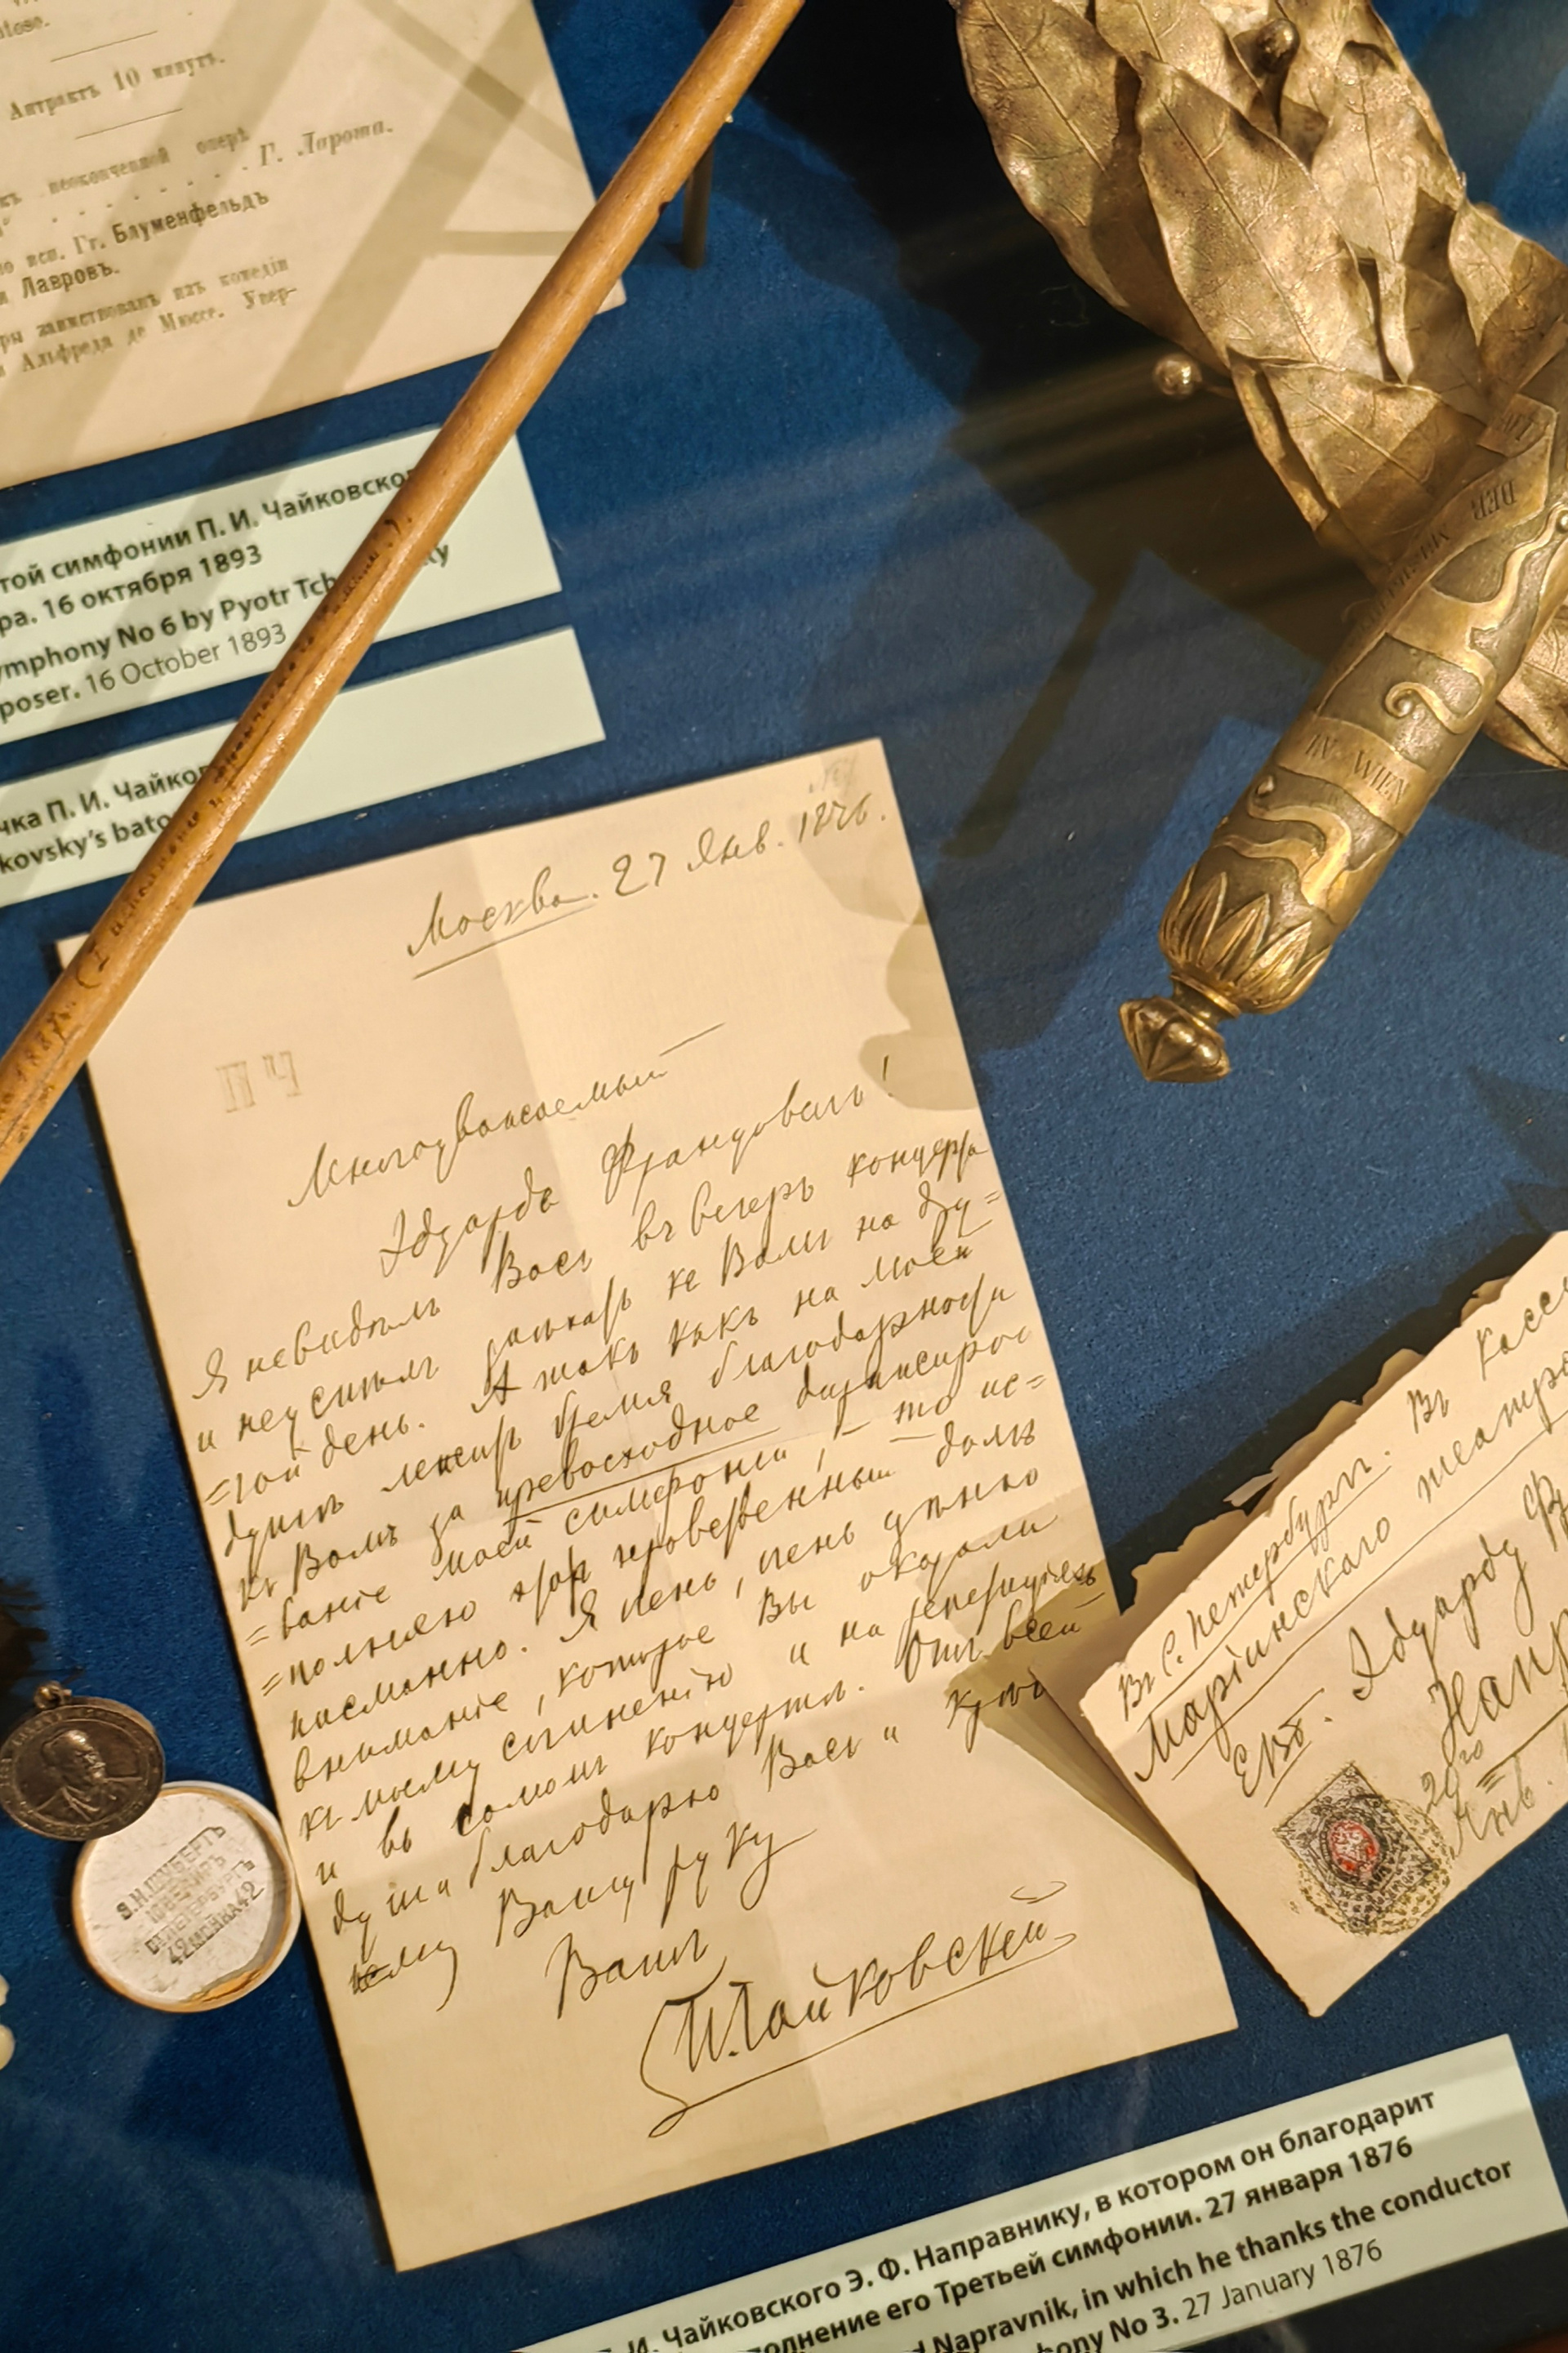 Антрактъ 10 минутъ.
неоконченной оперѣ
. . . . . . Г. Лароша.
исп. Гг. Блуменфельдъ
и Лавровъ.
заимствованъ изъ комедіи
Альфреда де Мюссе. Увер-
той симфонии П. И. Чайковско
ра. 16 октября 1893
ymphony No 6 by Pyotr Tch ky
poser. 16 October 1893
чка П. И. Чайков
kovsky's bato
DER
IN WIEN
Москва. 27 Янв. 1876.
П Ч
Многоуважаемый
Эдуардъ Францовичъ!
Я невидѣлъ Васъ въ вечеръ концерта
и неуспѣлъ заѣхать къ Вамъ на дру=
=гой день. А такъ какъ на моей
душѣ лежитъ бремя благодарности
къ Вамъ за превосходное дирижиро
=ваніе моей симфоніи, – то ис=
=полняю этотъ нравственный долгъ
письменно. Я очень, очень цѣню
вниманіе, которое Вы оказали
къ моему сочиненію и на репетиціяхъ
и въ самомъ концертѣ. Отъ всей
души благодарю Васъ и крѣпко
жму Вашу руку
Вашъ
П. Чайковскій
Въ С. Петербургъ. Въ кассу
Маріинскаго театра
Евб. Эдуарду Ф
Напр
20го
Янв.
ЮВЕЛИРЪ
С.ПЕТЕРБУРГЪ
И. Чайковского Э. Ф. Направнику, в котором он благодарит
полнение его Третьей симфонии. 27 января 1876
d Napravnik, in which he thanks the conductor
hony No 3. 27 January 1876